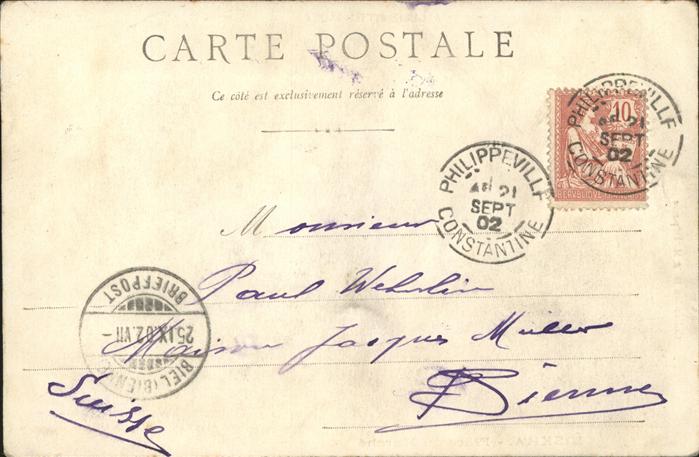 CARTE POSTALE
Ce côté est exclusivement réservé à l'adresse
10
PHILIPPEVILLE
21
SEPT
02
CONSTANTINE
PHILIPPEVILLE
21
SEPT
02
CONSTANTINE
Monsieur
Paul Wehrlin
Maison Jacques Müller
Bienne
Suisse
BRIEFPOST
25.IX.02.VII-
BIEL (BIENNE)